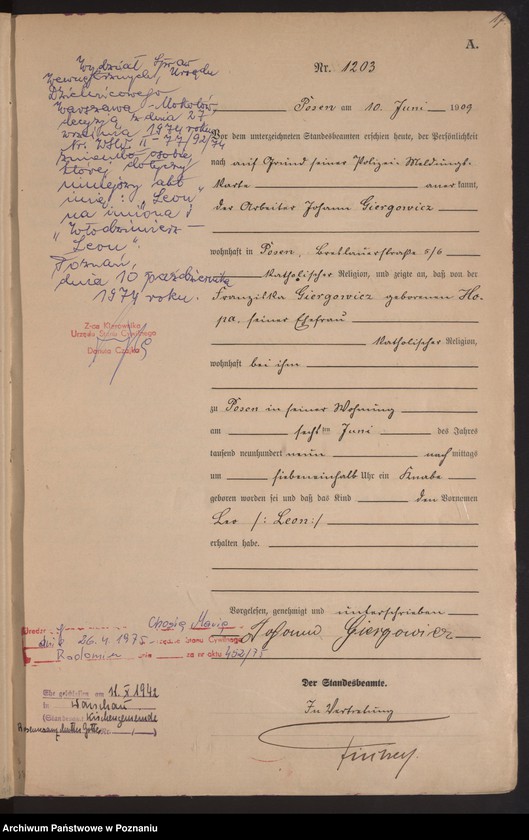 A.
Nr. 1203
Posen am 10. Juni 1909
Vor dem unterzeichneten Standesbeamten erschien heute, der Persönlichkeit
nach auf Grund seiner Polizei-Meldungs-
karte anerkannt,
der Arbeiter Johann Giergowicz
wohnhaft in Posen, Breslauerstraße 5/6
katholischer Religion, und zeigte an, daß von der
Franziska Giergowicz geborenen Ho-
pa, seiner Ehefrau
katholischer Religion,
wohnhaft bei ihm
zu Posen in seiner Wohnung
am sechsten Juni des Jahres
tausend neunhundert neun nachmittags
um siebeneinhalb Uhr ein Knabe
geboren worden sei und daß das Kind den Vornamen
Leo /: Leon :/
erhalten habe.
Vorgelesen, genehmigt und unterschrieben
Johann Giergowicz
Der Standesbeamte.
In Vertretung
Wydział Spraw
Wewnętrznych, Urzędu
Dzielnicowego
Warszawa-Mokotów
decyzją z dnia 27
września 1974 roku
Nr. II-77/92/74
zmienił osobie
której dotyczy
niniejszy akt
imię: "Leon"
na imiona:
"Włodzimierz-
Leon".
Poznań,
dnia 10 października
1974 roku.
Z-ca Kierownika
Urzędu Stanu Cywilnego
Danuta
Maria
dnia 26.4.1975 Stanu Cywilnego
Radomiu za nr aktu 452/75
Ehe geschlossen am 11.X.1942
in Warschau
(Standesamt Kirchengemeinde
Archiwum Państwowe w Poznaniu